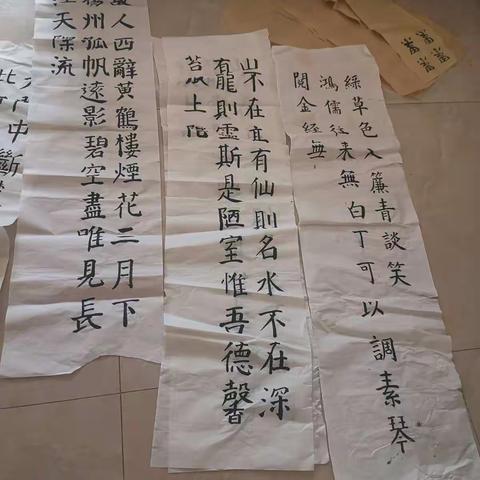 綠草色入簾青談笑
鴻儒往來無白丁可以調素琴
閱金經無
山不在有仙則名水不在深
有龍則靈斯是陋室惟吾德馨
苔上階
人西辭黃鶴樓煙花三月下
揚州孤帆遠影碧空盡唯見長
天際流
中斷